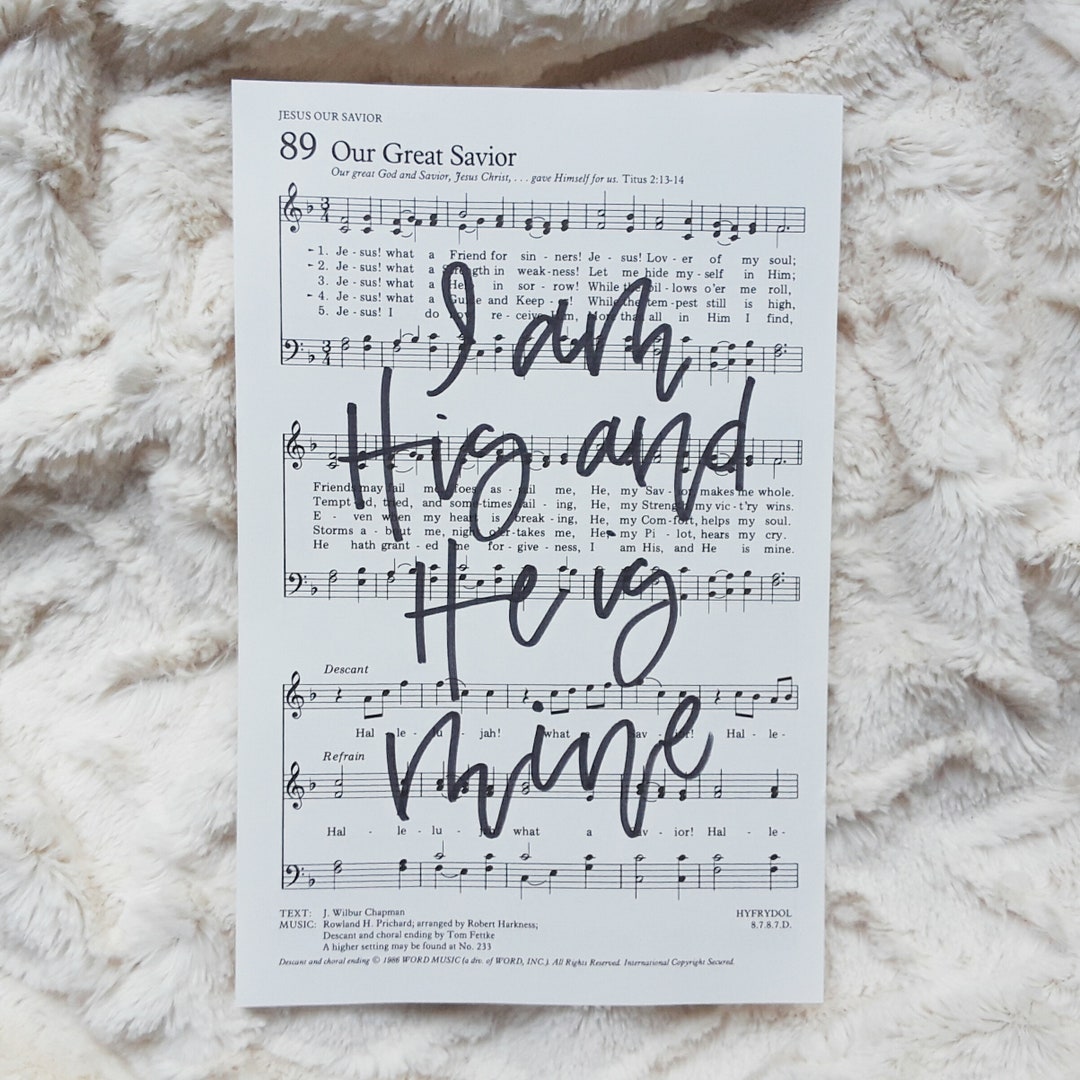 JESUS OUR SAVIOR
89 Our Great Savior
Our great God and Savior, Jesus Christ, . . . gave Himself for us. Titus 2:13-14
1. Je - sus! what a Friend for sin - ners! Je - sus! Lov - er of my soul;
2. Je - sus! what a Strength in weak - ness! Let me hide my - self in Him;
3. Je - sus! what a Help in sor - row! While the bil - lows o'er me roll,
4. Je - sus! what a Guide and Keep - er! While the tem - pest still is high,
5. Je - sus! I do now re - ceive Him, More than all in Him I find,
I am
His and
Friends may fail me, foes as - sail me, He, my Sav - ior, makes me whole.
Tempt - ed, tried, and some - times fail - ing, He, my Strength my vic - t'ry wins.
E - ven when my heart is break - ing, He, my Com - fort, helps my soul.
Storms a - bout me, night o'er - takes me, He, my Pi - lot, hears my cry.
He hath grant - ed me for - give - ness, I am His, and He is mine.
He is
Descant
Hal - le - lu - jah! what a Sav - ior! Hal - le -
mine
Refrain
Hal - le - lu - jah what a Sav - ior! Hal - le -
TEXT: J. Wilbur Chapman
MUSIC: Rowland H. Prichard; arranged by Robert Harkness;
Descant and choral ending by Tom Fettke
A higher setting may be found at No. 233
HYFRYDOL
8.7.8.7.D.
Descant and choral ending © 1986 WORD MUSIC (a div. of WORD, INC.). All Rights Reserved. International Copyright Secured.